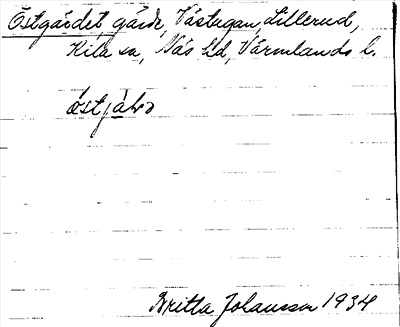 Östgärdet, gärde, Västugan, Lillerud,
Kila sn, Näs hd, Värmlands l.
Britta Johansson 1934